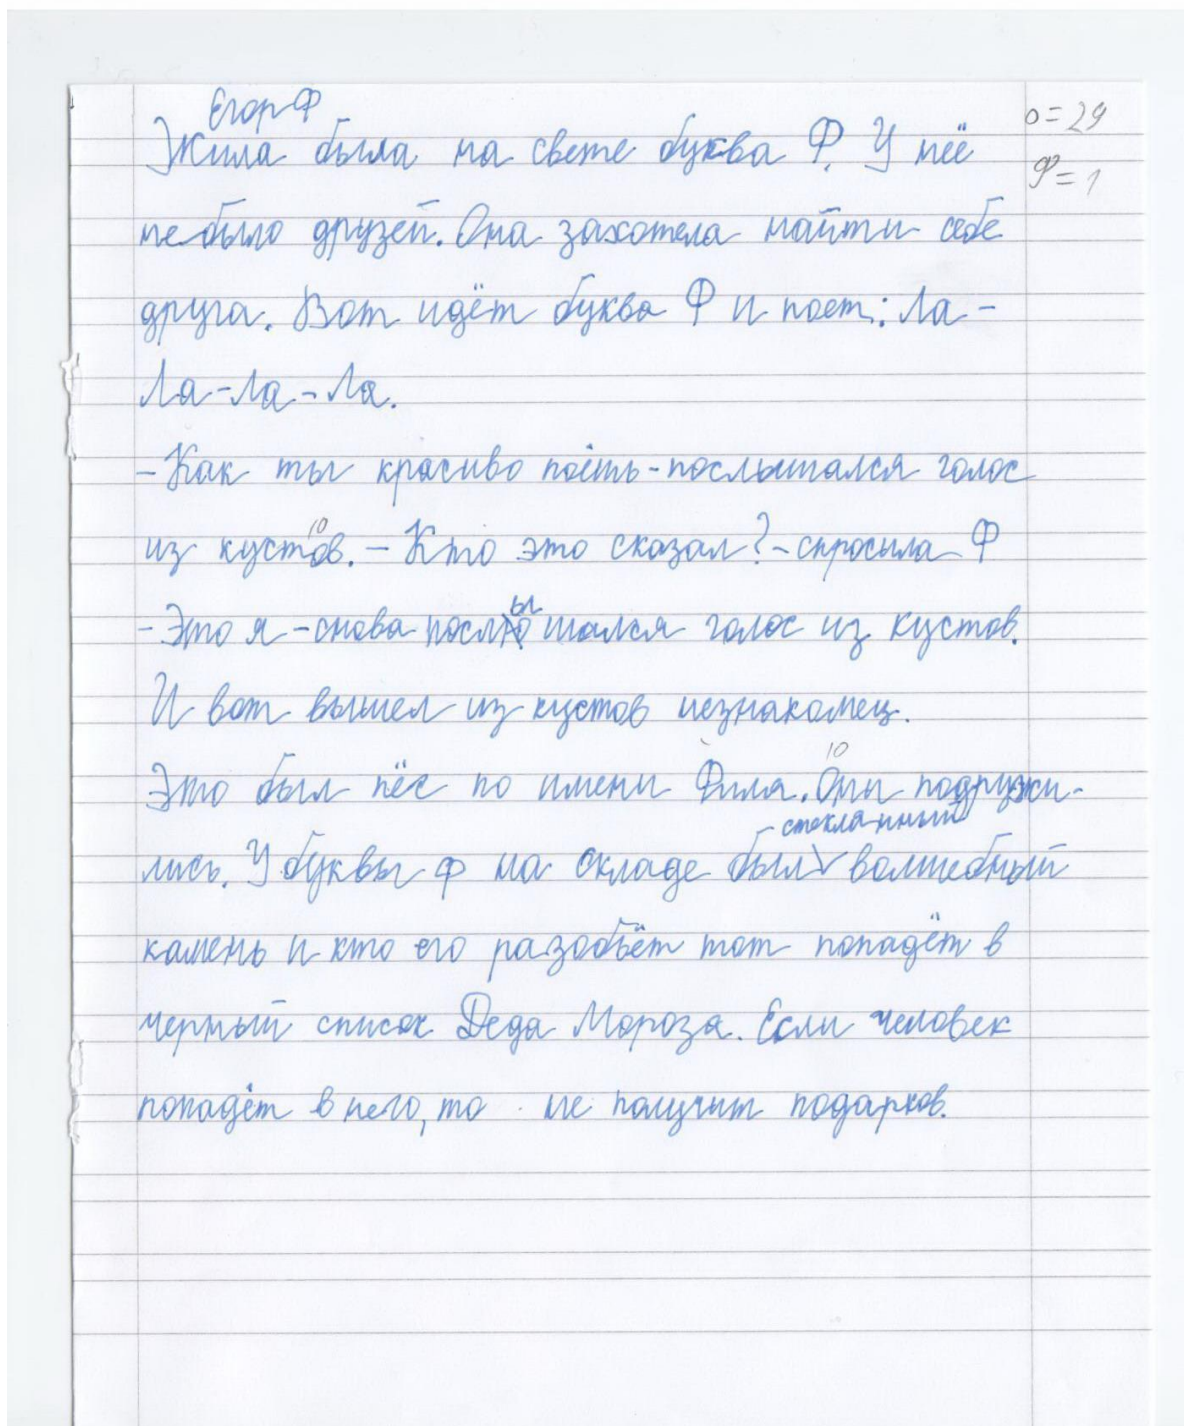 Егор Ф
о=29
Жила была на свете буква Ф. У неё
ф=1
не было друзей. Она захотела найти себе
друга. Вот идёт буква Ф и поет: Ла-
Ла-Ла-Ла.
-Как ты красиво поёть-послышался голос
10
из кустов. - Кто это сказал?-спросила Ф
ы
-Это я -снова послышался голос из кустов.
И вот вышел из кустов незнакомец.
10
Это был пёс по имени Филя. Они подружи-
стекланный
лись. У буквы ф на складе был волшебный
камень и кто его разобьёт тот попадёт в
черный список Деда Мороза. Если человек
попадёт в него, то не получит подарков.